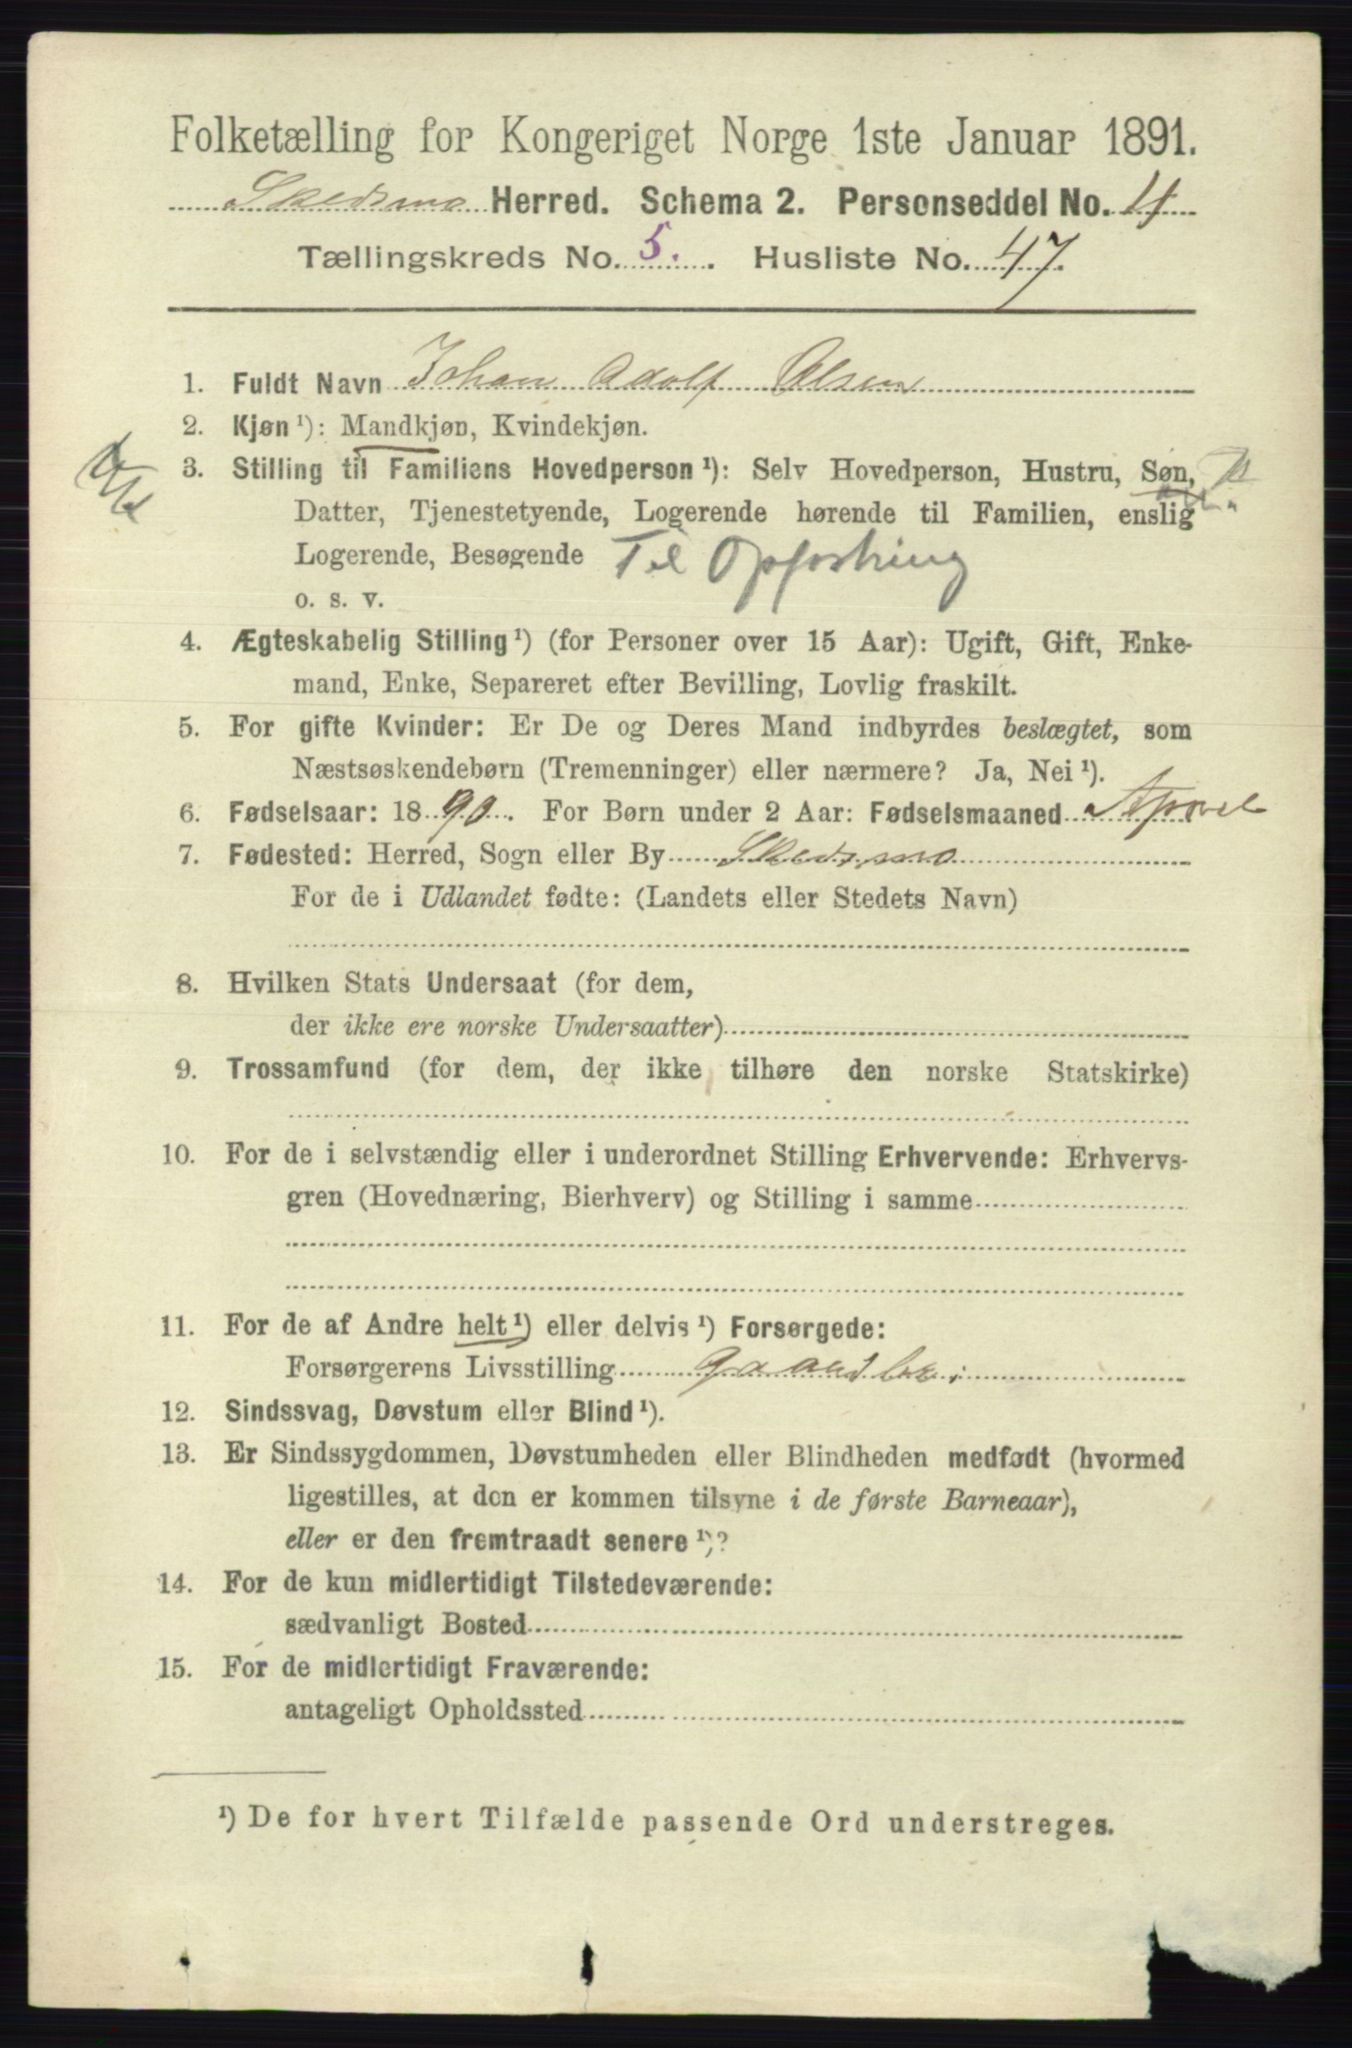 Folketælling for Kongeriget Norge 1ste Januar 1891.
Skedsmo Herred. Schema 2. Personseddel No. 4
Tællingskreds No. 5. Husliste No. 47.
1. Fuldt Navn Johan Adolf Olsen
2. Kjøn ¹): Mandkjøn, Kvindekjøn.
3. Stilling til Familiens Hovedperson ¹): Selv Hovedperson, Hustru, Søn,
Datter, Tjenestetyende, Logerende hørende til Familien, enslig
Logerende, Besøgende Til Opfostring
o. s. v.
4. Ægteskabelig Stilling ¹) (for Personer over 15 Aar): Ugift, Gift, Enke-
mand, Enke, Separeret efter Bevilling, Lovlig fraskilt.
5. For gifte Kvinder: Er De og Deres Mand indbyrdes beslægtet, som
Næstsøskendebørn (Tremenninger) eller nærmere? Ja, Nei ¹).
6. Fødselsaar: 1890. For Børn under 2 Aar: Fødselsmaaned April
7. Fødested: Herred, Sogn eller By Skedsmo
For de i Udlandet fødte: (Landets eller Stedets Navn)
8. Hvilken Stats Undersaat (for dem,
der ikke ere norske Undersaatter)
9. Trossamfund (for dem, der ikke tilhøre den norske Statskirke)
10. For de i selvstændig eller i underordnet Stilling Erhvervende: Erhvervs-
gren (Hovednæring, Bierhverv) og Stilling i samme
11. For de af Andre helt ¹) eller delvis ¹) Forsørgede:
Forsørgerens Livsstilling
12. Sindssvag, Døvstum eller Blind ¹).
13. Er Sindssygdommen, Døvstumheden eller Blindheden medfødt (hvormed
ligestilles, at den er kommen tilsyne i de første Barneaar),
eller er den fremtraadt senere ¹)?
14. For de kun midlertidigt Tilstedeværende:
sædvanligt Bosted
15. For de midlertidigt Fraværende:
antageligt Opholdssted
¹) De for hvert Tilfælde passende Ord understreges.